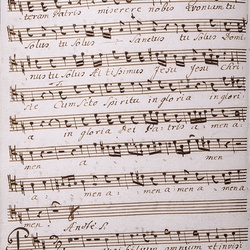 teram Patris miserere nobis Quonium tu
Solus tu Solus Sanctus tu Solus Domi
nus tu Solus Altissimus Jesu Jesu Chri
ste Cum Scto Spiritu in gloria in glori
a in gloria Dei Patris a mena
mena a mena
mena a mena a mena a
men
Andte
P omnium et invisi